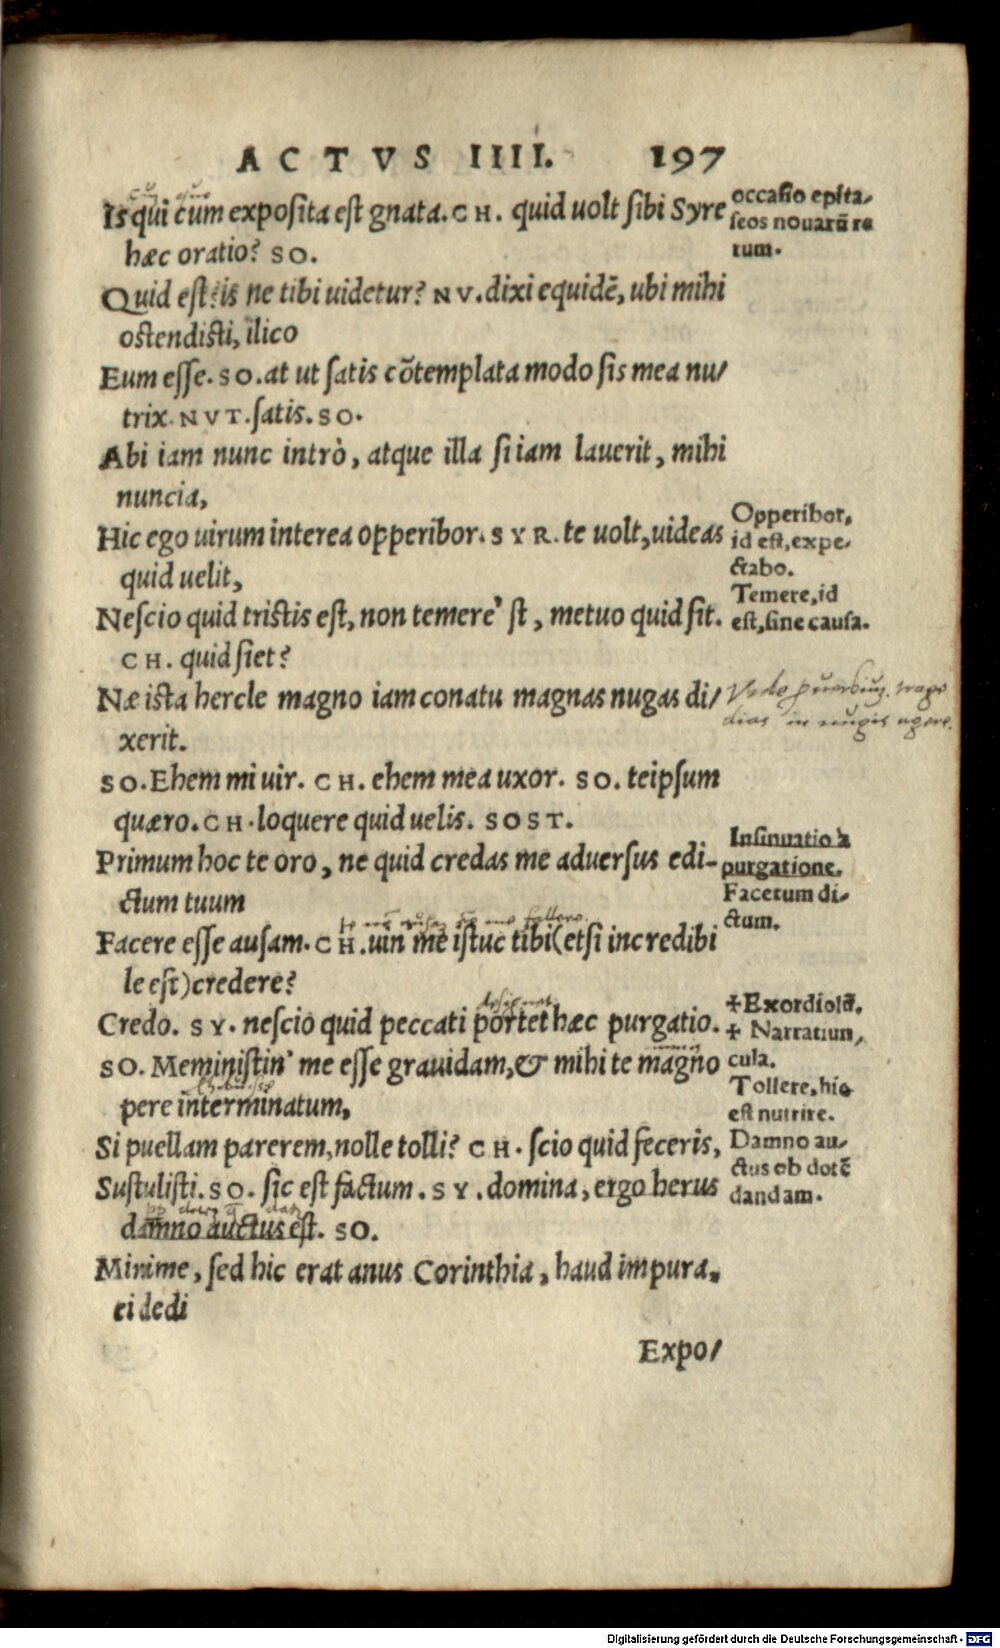 ACTVS IIII. 197
Is qui cum exposita est gnata. CH. quid uolt sibi Syre
hæc oratio? SO.
occasio epita/
seos nouarũ re
rum.
Quid est? is ne tibi uidetur? NV. dixi equidē, ubi mihi
ostendisti, ilico
Eum esse. SO. at ut satis cõtemplata modo sis mea nu/
trix. NVT. satis. SO.
Abi iam nunc intrò, atque illa si iam lauerit, mihi
nuncia,
Hic ego uirum interea opperibor. SYR. te uolt, uideas
quid uelit,
Opperibor,
id est, expe-
ctabo.
Nescio quid tristis est, non temere' st, metuo quid sit.
CH. quid siet?
Temere, id
est, sine causa.
Næ ista hercle magno iam conatu magnas nugas di/
xerit.
in nugis agere.
SO. Ehem mi uir. CH. ehem mea uxor. SO. teipsum
quæro. CH. loquere quid uelis. SOST.
Primum hoc te oro, ne quid credas me aduersus edi-
ctum tuum
Insinuatio à
purgatione.
Facetum di-
ctum.
me fallere.
Facere esse ausam. CH. uin me istuc tibi (etsi incredibi
le est) credere?
Credo. SY. nescio quid peccati portet hæc purgatio.
✢ Exordiolũ.
✢ Narratiun/
cula.
SO. Meministin' me esse grauidam, & mihi te magno
pere interminatum,
Tollere, hic
est nutrire.
Si puellam parerem, nolle tolli? CH. scio quid feceris,
Sustulisti. SO. sic est factum. SY. domina, ergo herus
damno auctus est. SO.
Damno au-
ctus ob dotē
dandam.
Minime, sed hic erat anus Corinthia, haud impura,
ei dedi
Expo/
Digitalisierung gefördert durch die Deutsche Forschungsgemeinschaft - DFG